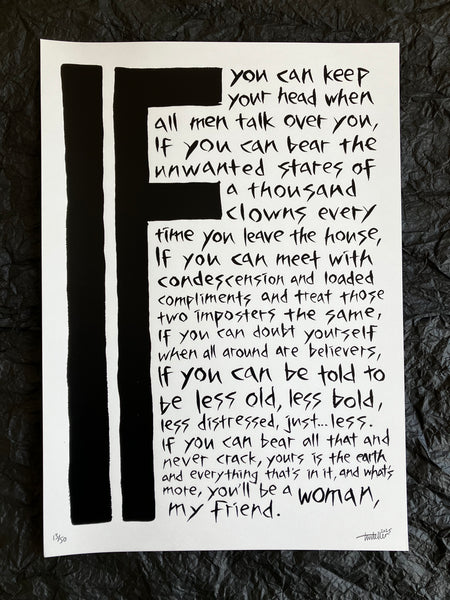 IF you can keep
your head when
all men talk over you,
If you can bear the
unwanted stares of
a thousand
clowns every
time you leave the house,
If you can meet with
condescension and loaded
compliments and treat those
two imposters the same,
If you can doubt yourself
when all around are believers,
If you can be told to
be less old, less bold,
less distressed, just...less.
If you can bear all that and
never crack, yours is the earth
and everything that's in it, and what's
more, you'll be a woman,
my friend.
13/50
2025